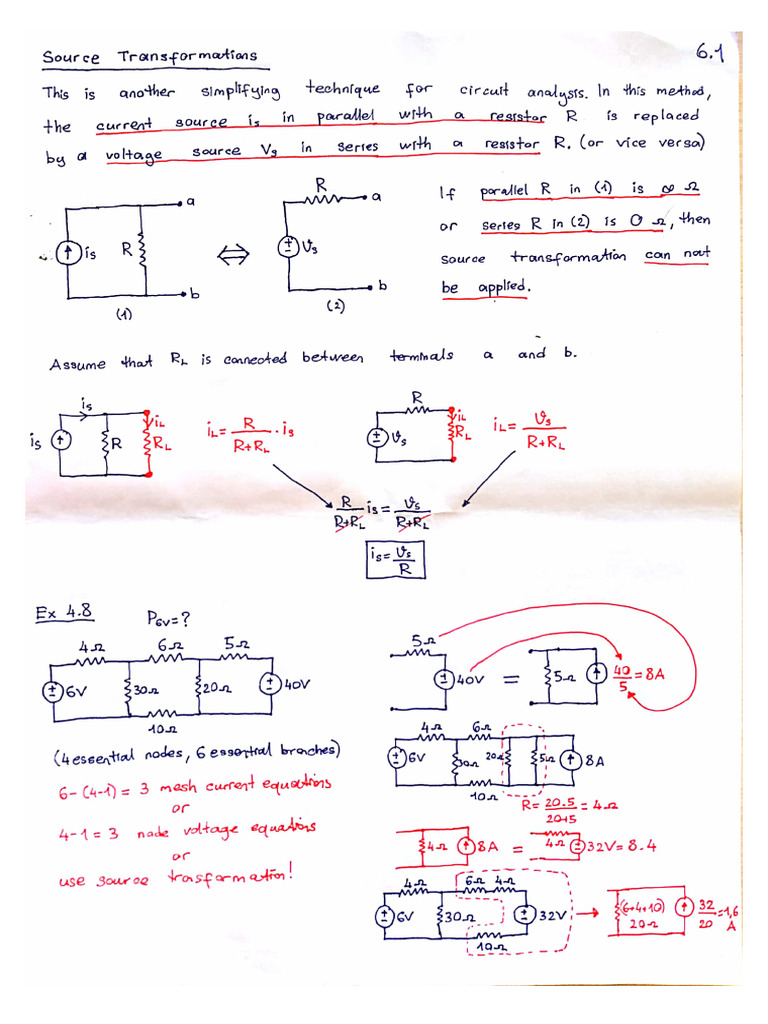 Source Transformations
6.1
This is another simplifying technique for circuit analysis. In this method,
the current source is in parallel with a resistor R is replaced
by a voltage source Vs in series with a resistor R. (or vice versa)
R
a
is
R
b
(1)
⇔
a
+
-
Vs
b
(2)
If parallel R in (1) is ∞ Ω
or series R in (2) is 0 Ω, then
source transformation can not
be applied.
Assume that RL is connected between terminals a and b.
is
is
R
iL
RL
iL = R/(R+RL) . is
R
Vs
iL
RL
iL = Vs/(R+RL)
R/(R+RL) is = Vs/(R+RL)
is = Vs/R
Ex 4.8
P6V = ?
4Ω 6Ω 5Ω
6V 30Ω 20Ω 40V
10Ω
(4 essential nodes, 6 essential branches)
6-(4-1) = 3 mesh current equations
or
4-1 = 3 node voltage equations
or
use source trasformation!
5Ω
40V
=
5Ω
40/5 = 8A
4Ω 6Ω
6V 30Ω 20Ω 5Ω 8A
10Ω
R = 20.5/20+5 = 4Ω
4Ω 8A = 4Ω 32V = 8.4
4Ω 6Ω 4Ω
6V 30Ω 32V
10Ω
→
(6+4+10)
20Ω
32/20 = 1,6
A